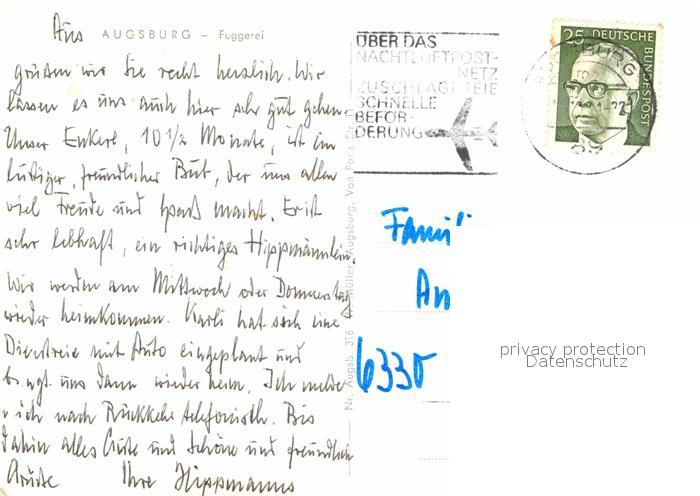 Aus AUGSBURG – Fuggerei
grüßen wir Sie recht herzlich. Wir
lassen es uns auch hier sehr gut gehen.
Unser Enkerl, 10 1/2 Monate, ist ein
lustiger, freundlicher Bub, der uns allen
viel Freude und Spaß macht. Er ist
sehr lebhaft, ein richtiges Hippmännlein.
Wir werden am Mittwoch oder Donnerstag
wieder heimkommen. Karli hat sich eine
Dienstreise mit Auto eingeplant und
bringt uns dann wieder heim. Ich melde
mich nach Rückkehr telefonisch. Bis
dahin alles Gute und Schöne und freundliche
Grüße Ihre Hippmanns
Nr. Augsb. 316 Müller, Augsburg, Von
ÜBER DAS
NACHTLUFTPOST-
NETZ
ZUSCHLAGFREIE
SCHNELLE
BEFÖR-
DERUNG
25 DEUTSCHE
BUNDESPOST
89
Fami
An
6330
privacy protection
Datenschutz